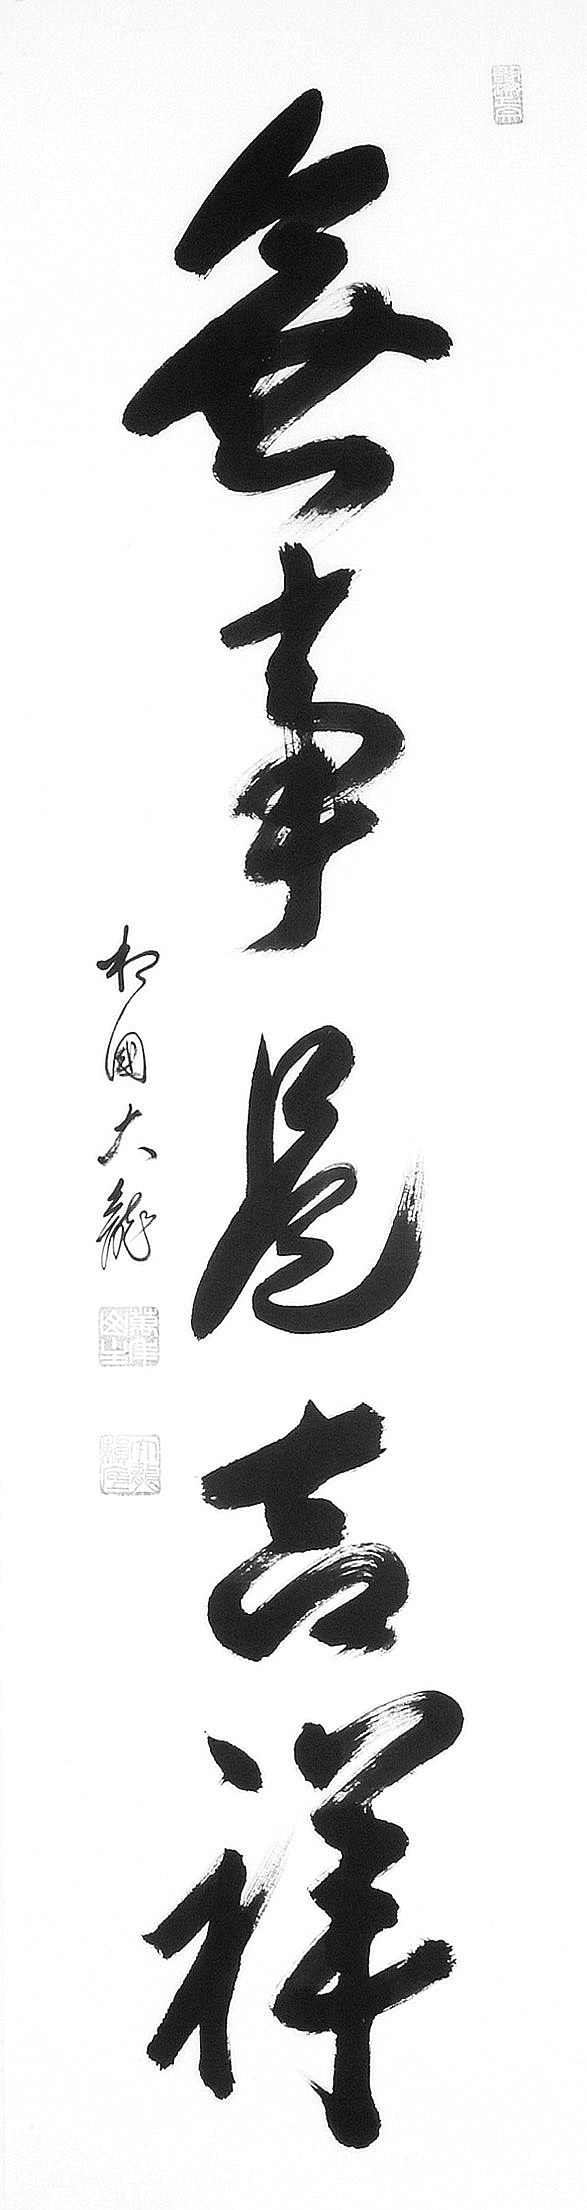 無事是吉祥
相國大龍